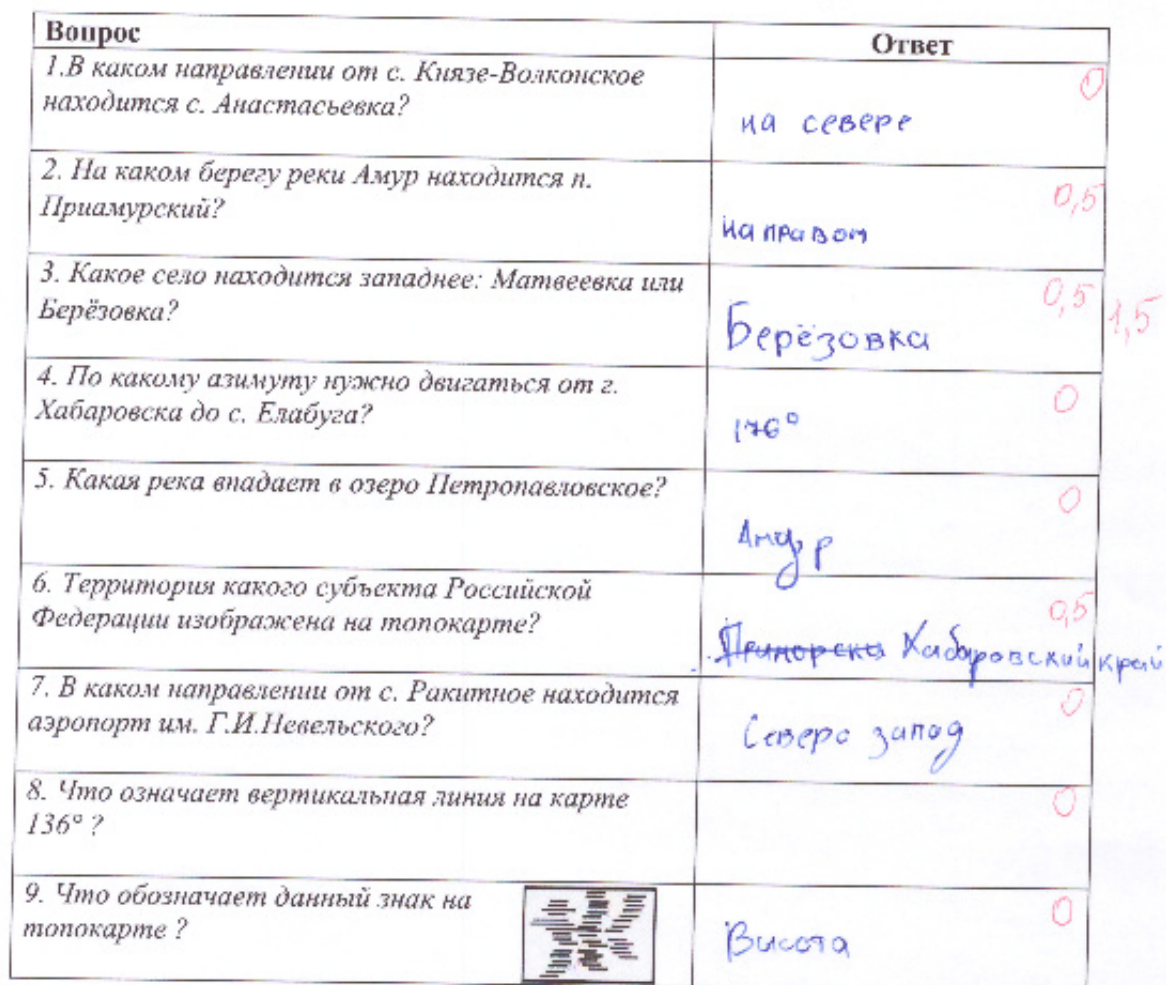 Вопрос
Ответ
1.В каком направлении от с. Князе-Волконское
находится с. Анастасьевка?
0
на севере
2. На каком берегу реки Амур находится п.
Приамурский?
0,5
на правом
3. Какое село находится западнее: Матвеевка или
Берёзовка?
0,5
1,5
Берёзовка
4. По какому азимуту нужно двигаться от г.
Хабаровска до с. Елабуга?
0
176°
5. Какая река впадает в озеро Петропавловское?
0
Амур
6. Территория какого субъекта Российской
Федерации изображена на топокарте?
0,5
Приморска Хабаровский край
7. В каком направлении от с. Ракитное находится
аэропорт им. Г.И.Невельского?
0
Северо запад
8. Что означает вертикальная линия на карте
136° ?
0
9. Что обозначает данный знак на
топокарте ?
0
Высота